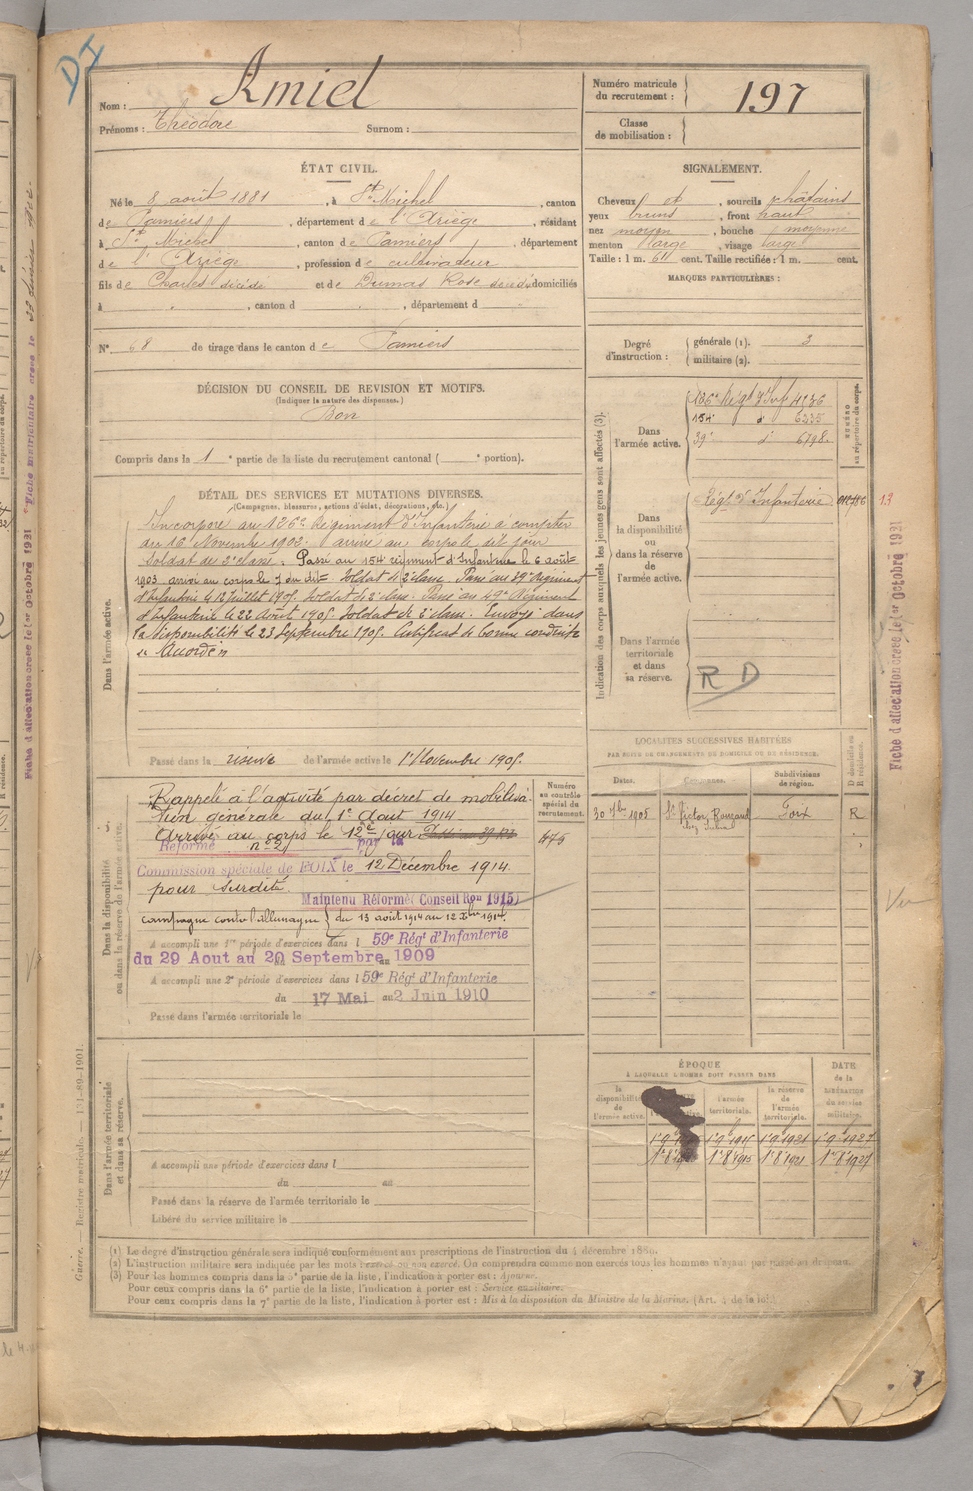 DI
Nom : Amiel
Prénoms : Théodore Surnom :
Numéro matricule du recrutement : 197
Classe de mobilisation :
ÉTAT CIVIL.
Né le 8 août 1881, à St Michel, canton
de Pamiers, département de l'Ariège, résidant
à St Michel, canton de Pamiers, département
de l'Ariège, profession de cultivateur
fils de Charles décédé et de Dumas Rose domiciliés
à , canton d , département d
N° 68 de tirage dans le canton de Pamiers
SIGNALEMENT.
Cheveux et , sourcils châtains
yeux bruns , front haut
nez moyen , bouche moyenne
menton large , visage large
Taille : 1 m. 611 cent. Taille rectifiée : 1 m. cent.
MARQUES PARTICULIÈRES :
Degré d'instruction : générale (1). 3
militaire (2).
DÉCISION DU CONSEIL DE REVISION ET MOTIFS.
(Indiquer la nature des dispenses.)
Bon
Compris dans la 1e partie de la liste du recrutement cantonal ( e portion).
DÉTAIL DES SERVICES ET MUTATIONS DIVERSES.
(Campagnes, blessures, actions d'éclat, décorations, etc.)
Dans l'armée active.
Incorporé au 126e Régiment d'Infanterie à compter
du 16 Novembre 1902. arrivé au corps le dit jour
Soldat de 2e classe. Passé au 154e régiment d'Infanterie le 6 août
1903 arrivé au corps le 7 du dit. Soldat de 2e classe. Passé au 39e Régiment
d'Infanterie le 12 Juillet 1905. Soldat de 2e classe. Passé au 49e Régiment
d'Infanterie le 22 Août 1905. Soldat de 2e classe. Envoyé dans
la disponibilité le 23 Septembre 1905. Certificat de bonne conduite
Accordé
Passé dans la réserve de l'armée active le 1er Novembre 1905.
Indication des corps auxquels les jeunes gens sont affectés (3).
NUMÉRO au répertoire du corps.
Dans l'armée active.
126e Régt d'Inf 4236
154e d° 6235
39e d° 6798
Dans la disponibilité ou dans la réserve de l'armée active.
Régt d'Infanterie
13
Dans l'armée territoriale et dans sa réserve.
R D
Fiche d'affectation créée le 1er Octobre 1931
Fiche d'affectation créée le 1er Octobre 1931
Dans la disponibilité ou dans la réserve de l'armée active.
Numéro au contrôle spécial du recrutement.
Rappelé à l'activité par décret de mobilisa-
tion générale du 1er Aout 1914
Arrivé au corps le 12e jour
Réformé n° 2 par la
Commission spéciale de FOIX le 12 Décembre 1914.
pour surdité.
Maintenu Réformé (Conseil Ron 1915)
campagne contre l'allemagne du 13 août 1914 au 12 Xbre 1914.
A accompli une 1re période d'exercices dans l 59e Régt d'Infanterie
du 29 Aout au 20 Septembre 1909
A accompli une 2e période d'exercices dans l 59e Régt d'Infanterie
du 17 Mai au 2 Juin 1910
Passé dans l'armée territoriale le
LOCALITÉS SUCCESSIVES HABITÉES
PAR SUITE DE CHANGEMENTS DE DOMICILE OU DE RÉSIDENCE.
Dates. Communes. Subdivisions de région. D domicile ou R résidence.
30 7bre 1905 St Victor Rouzaud Foix R
Dans l'armée territoriale et dans sa réserve.
A accompli une période d'exercices dans l
du au
Passé dans la réserve de l'armée territoriale le
Libéré du service militaire le
ÉPOQUE
À LAQUELLE L'HOMME DOIT PASSER DANS
DATE de la LIBÉRATION du service militaire.
la disponibilité de l'armée active.
l'armée territoriale.
la réserve de l'armée territoriale.
1er 9e 1915 1er 9e 1921 1er 9e 1927
1er 8e 1915 1er 8e 1921 1er 8e 1927
(1) Le degré d'instruction générale sera indiqué conformément aux prescriptions de l'instruction du 4 décembre 1889.
(2) L'instruction militaire sera indiquée par les mots : exercé ou non exercé. On comprendra comme non exercés tous les hommes n'ayant pas passé au drapeau.
(3) Pour les hommes compris dans la 5e partie de la liste, l'indication à porter est : Ajourné.
Pour ceux compris dans la 6e partie de la liste, l'indication à porter est : Service auxiliaire.
Pour ceux compris dans la 7e partie de la liste, l'indication à porter est : Mis à la disposition du Ministre de la Marine. (Art. 4 de la loi.)
Guerre. — Registre matricule. — 131-89-1901.